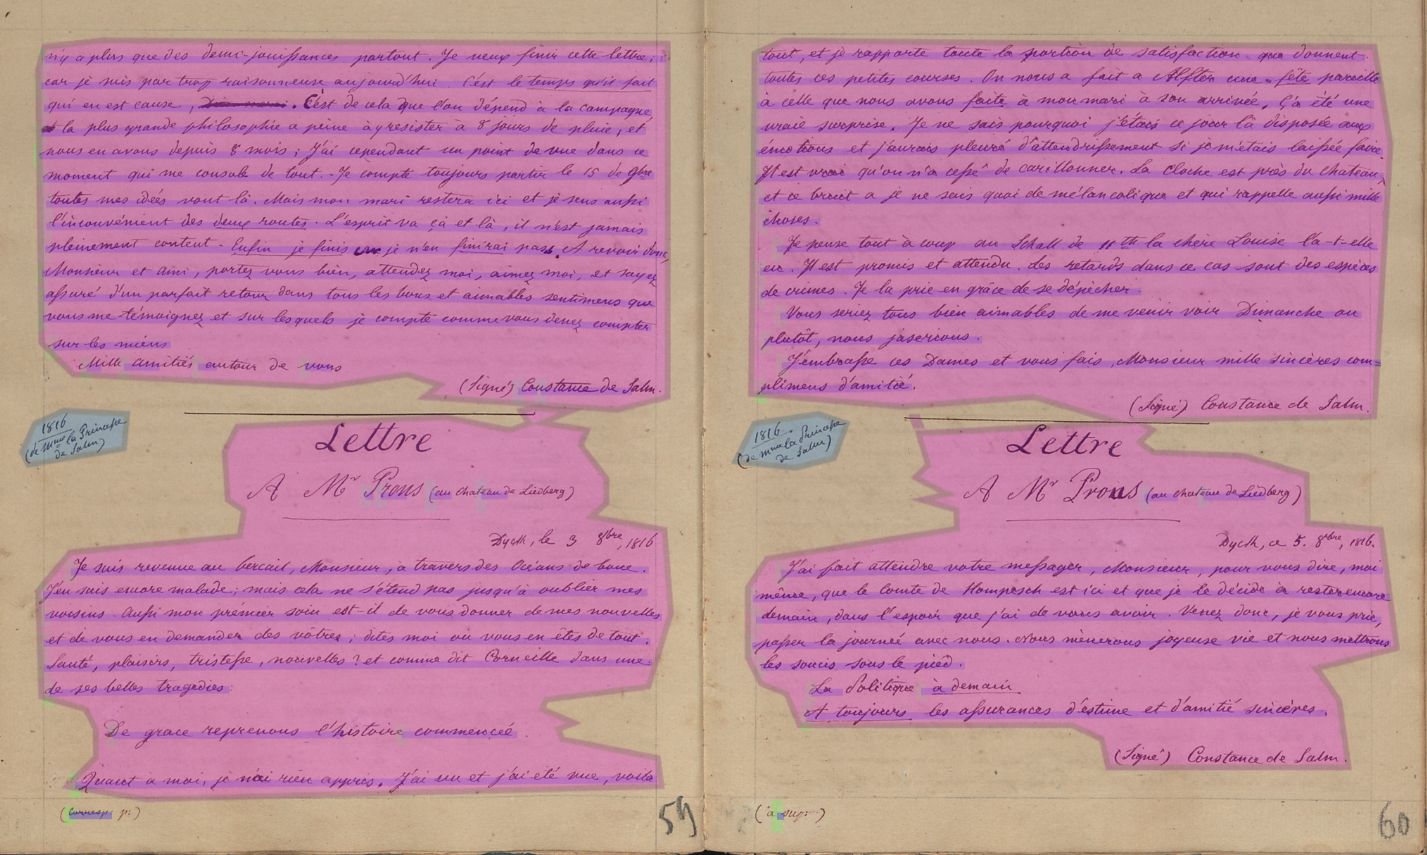 n'y a plus que des demi-jouissances partout. Je veux finir cette lettre,
car je suis par trop raisonneuse aujourd'hui. C'est le temps qu'il fait
qui en est cause, C'est de cela que l'on dépend à la campagne,
la plus grande philosophie a peine à y résister à 8 jours de pluie, et
nous en avons depuis 8 mois; J'ai cependant un point de vue dans ce
moment qui me console de tout. Je compte toujours partir le 15 de 9bre
toutes mes idées vont là. Mais mon mari restera ici et je sens aussi
l'inconvénient des deux routes. L'esprit va çà et là, il n'est jamais
pleinement content. Enfin je finis je n'en finirai pas. A revoir donc,
Monsieur et ami, portez vous bien, attendez moi, aimez moi, et soyez
assuré d'un parfait retour dans tous les bons et aimables sentimens que
vous me témoignez et sur lesquels je compte comme vous devez compter
sur les miens
Mille amitiés autour de vous
(Signé) Constance de Salm.
1816
(de Mme la Princesse
de Salm)
Lettre
A Mr Prous (au chateau de Liedberg)
Dyck, le 3 8bre, 1816
Je suis revenue au bercail, Monsieur, à travers des Océans de boue.
J'en suis encore malade; mais cela ne s'étend pas jusqu'à oublier mes
voisins. Aussi mon prémier soin est-il de vous donner de mes nouvelles
et de vous en demander des vôtres; dites moi où vous en êtes de tout.
Santé, plaisirs, tristesse, nouvelles? et comme dit Corneille dans une
de ses belles tragédies:
De grace reprenons l'histoire commencée.
Quant à moi, je n'ai rien appris. J'ai vu et j'ai été vue, voilà
(corresp. p.)
59
tout, et je rapporte toute la portion de satisfaction que donnent
toutes ces petites courses. On nous a fait a Alfter une fête pareille
à celle que nous avons faite à mon mari à son arrivée, Ç'a été une
vraie surprise. Je ne sais pourquoi j'étais ce jour là disposée aux
émotions et j'aurais pleuré d'attendrissement si je m'étais laissée faire.
Il est vrai qu'on n'a cessé de carillonner. La cloche est près du chateau,
et ce bruit a je ne sais quoi de mélancolique et qui rappelle aussi mille
choses.
Je pense tout à coup au Schall de la chère Louise l'a-t-elle
eu. Il est promis et attendu. Les retards dans ce cas sont des espèces
de crimes. Je la prie en grâce de se dépêcher.
Vous seriez tous bien aimables de me venir voir Dimanche ou
plutôt, nous jaserions.
J'embrasse ces Dames et vous fais, Monsieur mille sincères com=
plimens d'amitié.
(Signé) Constance de Salm.
1816.
(de Mme la Princesse
de Salm)
Lettre
A Mr Prous (au chateau de Liedberg)
Dyck, ce 5. 8bre, 1816.
J'ai fait attendre votre messager, Monsieur, pour vous dire, moi
même, que le Comte de Hompesch est ici et que je le décide à rester encore
demain, dans l'espoir que j'ai de vous avoir Venez donc, je vous prie,
passer la journée avec nous. Nous mènerons joyeuse vie et nous mettrons
les soucis sous le pied.
La Politique à demain
A toujours les assurances d'estime et d'amitié sincères.
(Signé) Constance de Salm.
(à supr)
60